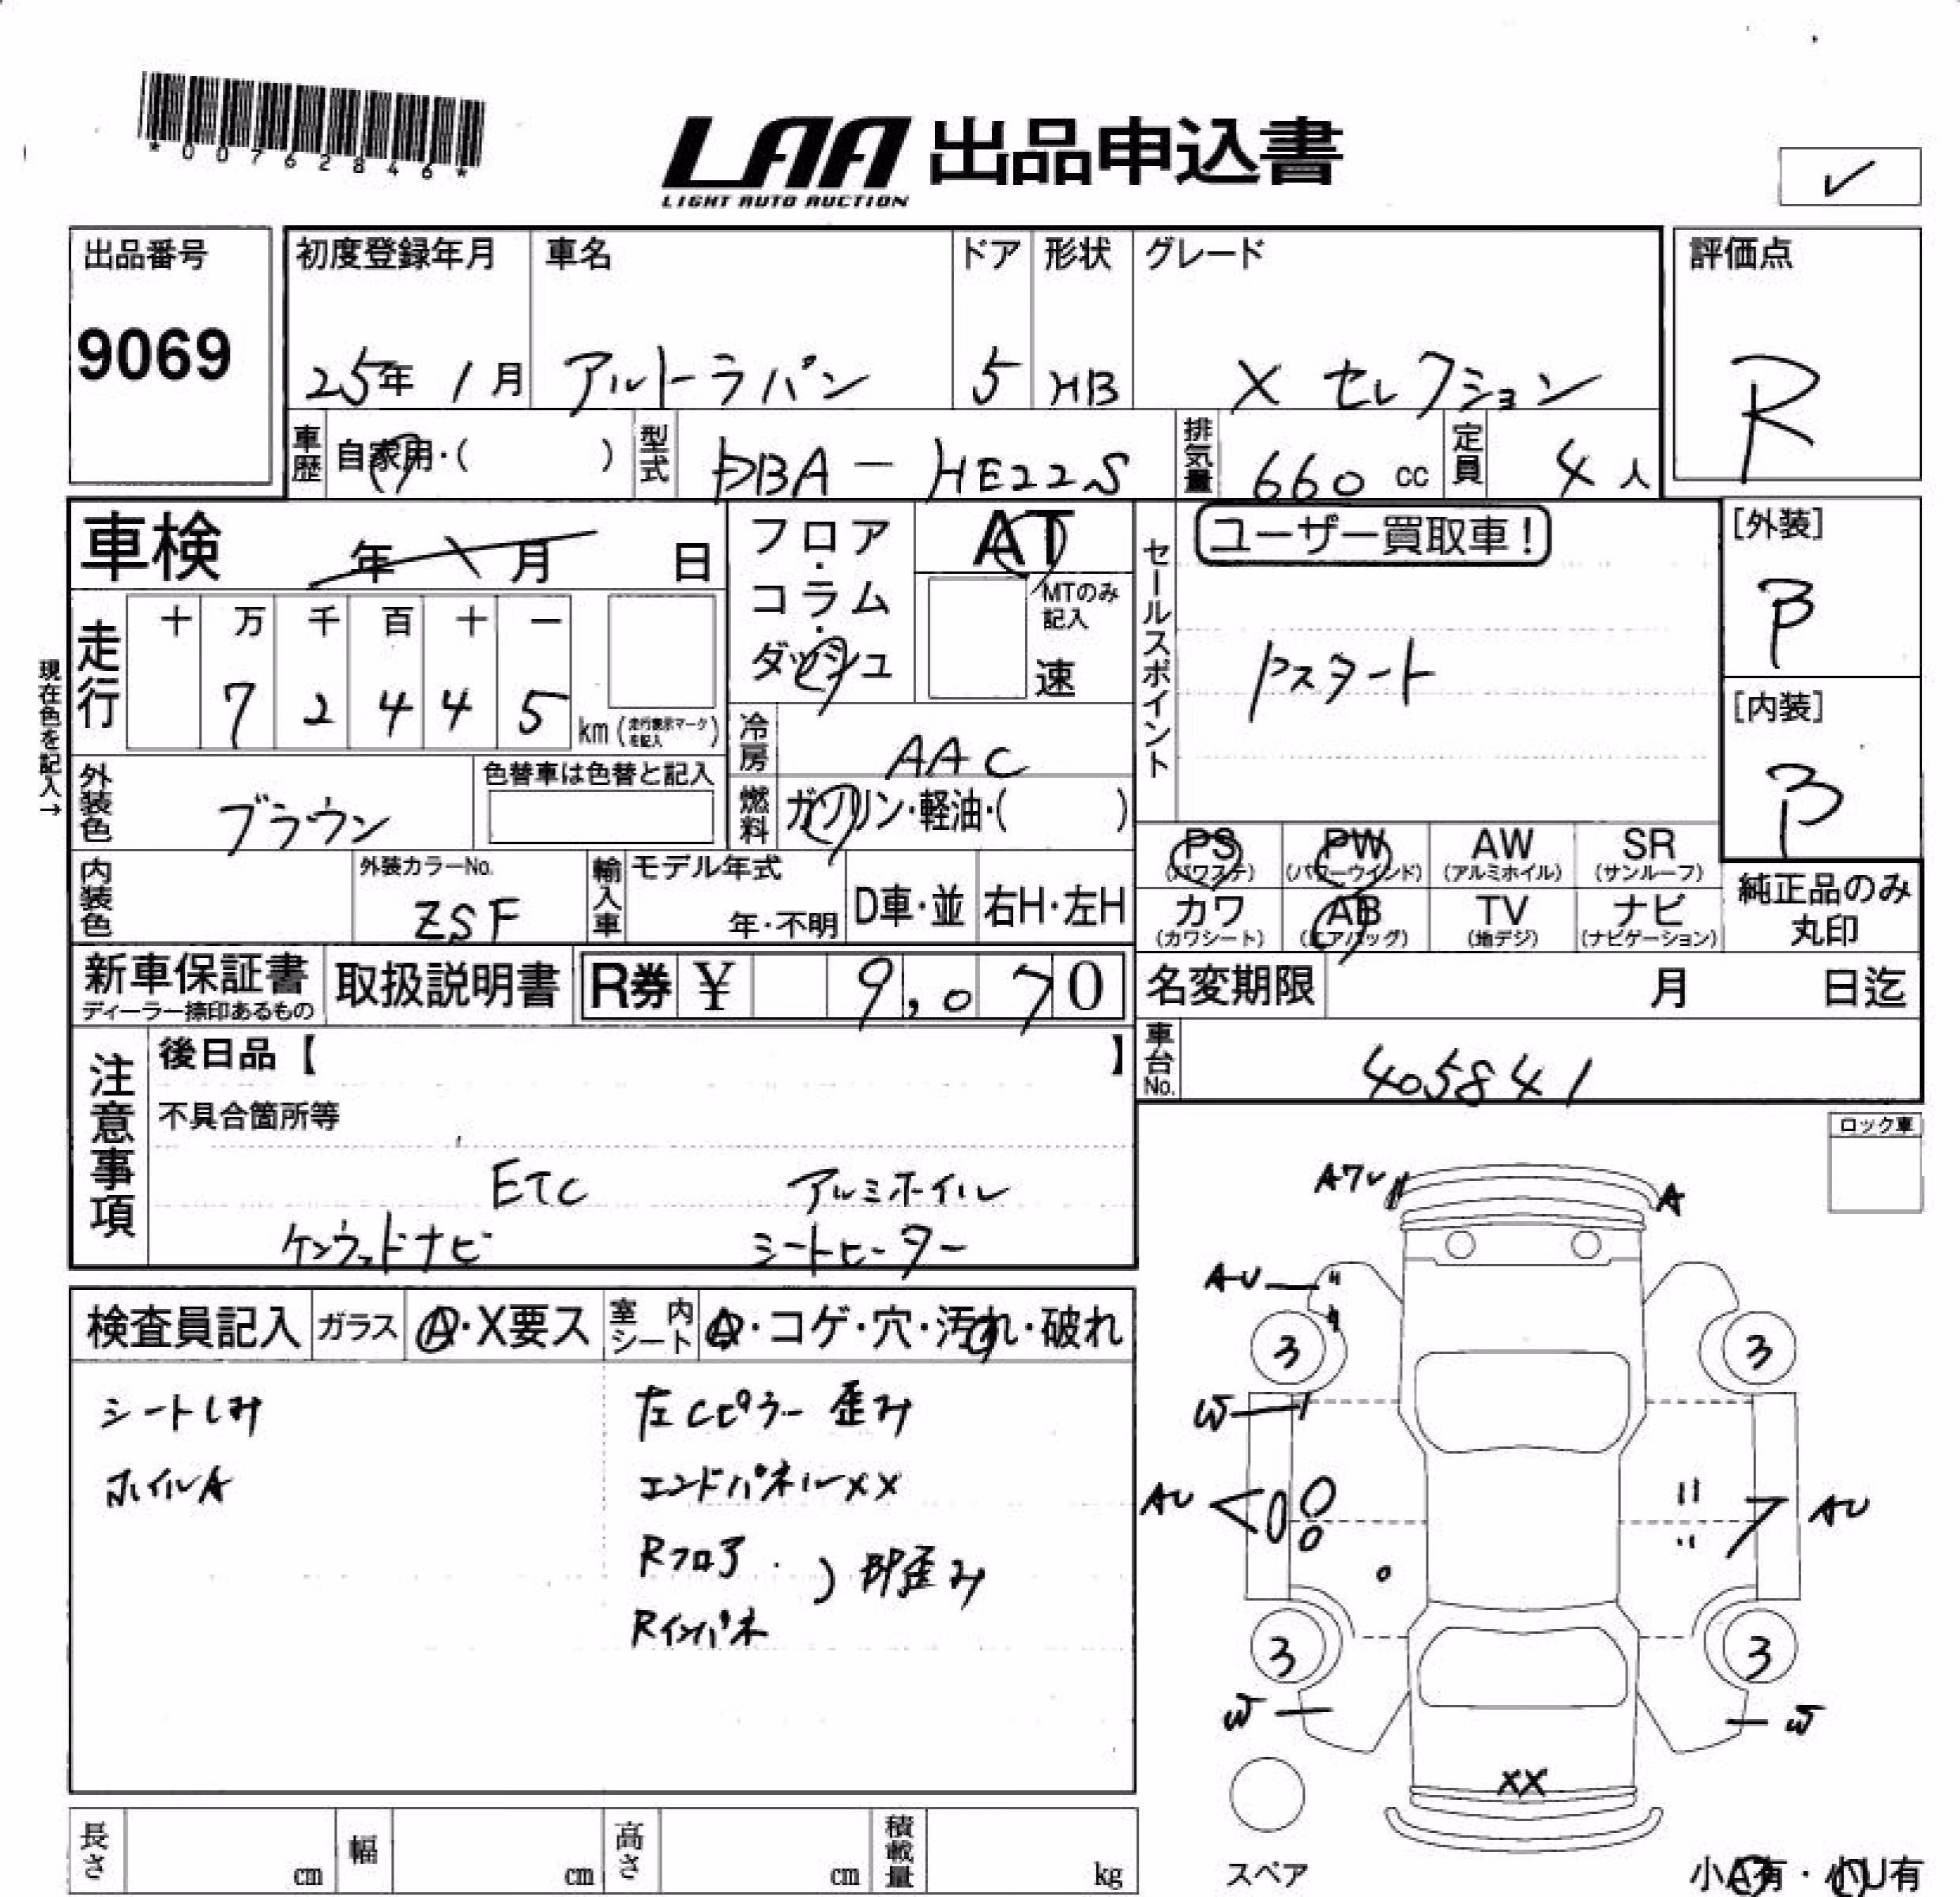 *00762846*
LAA 出品申込書
LIGHT AUTO AUCTION
✓
出品番号
9069
初度登録年月
25年 1月
車名
アルトラパン
ドア
5
形状
HB
グレード
X セレクション
評価点
R
車歴
自家用・( )
型式
DBA - HE22S
排気量
660 cc
定員
4 人
車検
年 月 日
フロア・コラム・ダッシュ
AT
MTのみ記入
速
セールスポイント
ユーザー買取車!
Pスタート
[外装]
B
[内装]
B
現在色を記入→
走行
十 万 千 百 十 一
7 2 4 4 5
km(走行表示マークを記入)
冷房
AAC
燃料
ガソリン・軽油・( )
外装色
ブラウン
色替車は色替と記入
PS (パワステ) PW (パワーウインド) AW (アルミホイル) SR (サンルーフ)
カワ (カワシート) AB (エアバッグ) TV (地デジ) ナビ (ナビゲーション)
純正品のみ
丸印
内装色
外装カラーNo.
ZSF
輸入車
モデル年式
年・不明
D車・並
右H・左H
新車保証書
ディーラー捺印あるもの
取扱説明書
R券 ¥ 9,070
名変期限 月 日迄
車台No.
405841
注意事項
後日品【 】
不具合箇所等
ETC アルミホイル
ケンウッドナビ シートヒーター
ロック車
検査員記入
ガラス
A・X要ス
室内シート
A・コゲ・穴・汚れ・破れ
シートしみ
ホイルA
左Cピラー 歪み
エンドパネルXX
Rフロア
Rインパネ
歪み
A
AU
3 3
W
AU AU
3 3
W W
XX
スペア
小A有・小U有
長さ cm
幅 cm
高さ cm
積載量 kg